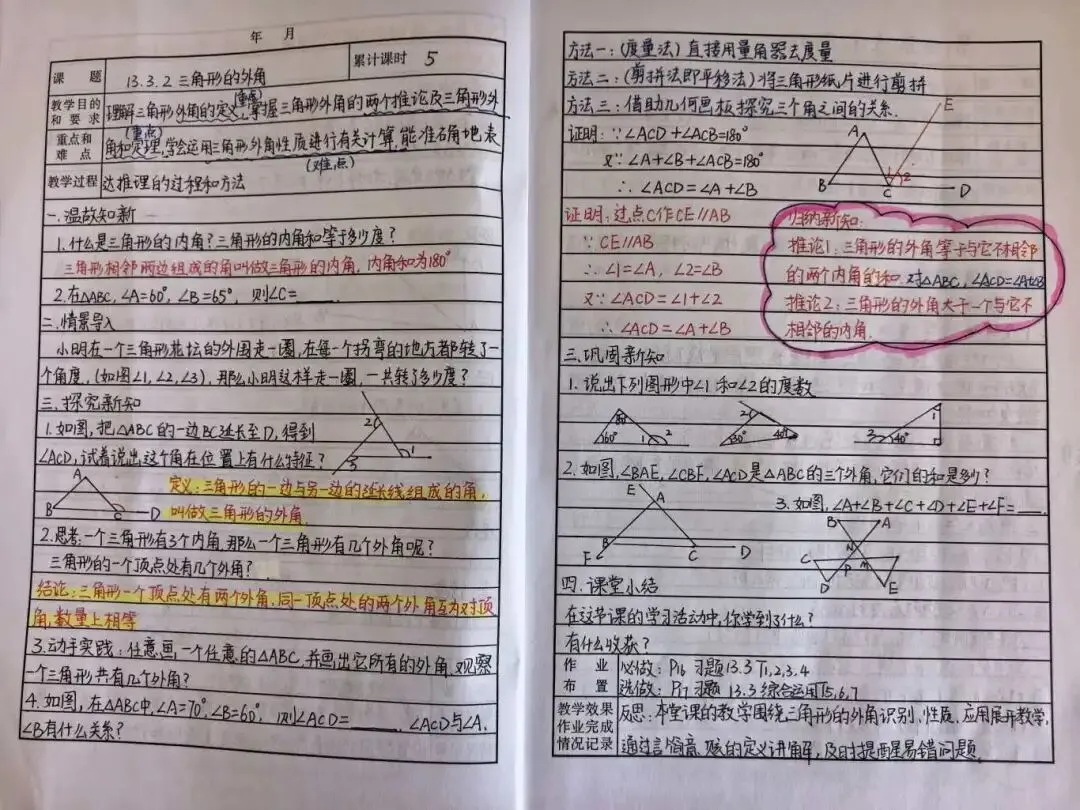 年 月
课 题 13.3.2 三角形的外角 累计课时 5
教学目的和要求 理解三角形外角的定义,掌握三角形外角的两个推论及三角形外
(重点)
重点和难点 角和定理,学会运用三角形外角性质进行有关计算,能准确地表
(重点)
(难点)
教学过程 达推理的过程和方法
一.温故知新
1.什么是三角形的内角?三角形的内角和等于多少度?
三角形相邻两边组成的角叫做三角形的内角,内角和为180°
2.在△ABC,∠A=60°,∠B=65°,则∠C=____.
二.情景导入
小明在一个三角形花坛的外围走一圈,在每一个拐弯的地方都转了一
个角度,(如图∠1,∠2,∠3),那么小明这样走一圈,一共转了多少度?
三.探究新知
1.如图,把△ABC的一边BC延长至D,得到
∠ACD,试着说出这个角在位置上有什么特征?
2 1 3
定义:三角形的一边与另一边的延长线组成的角,
叫做三角形的外角.
A B C D
2.思考:一个三角形有3个内角,那么一个三角形有几个外角呢?
三角形的一个顶点处有几个外角?
结论:三角形一个顶点处有两个外角,同一顶点处的两个外角互为对顶
角,数量上相等
3.动手实践:任意画一个任意的△ABC,并画出它所有的外角,观察
一个三角形共有几个外角?
4.如图,在△ABC中,∠A=70°,∠B=60°,则∠ACD=____. ∠ACD与∠A,
∠B有什么关系?
方法一:(度量法)直接用量角器去度量
方法二:(剪拼法即平移法)将三角形纸片进行剪拼
方法三:借助几何画板,探究三个角之间的关系.
证明:∵∠ACD+∠ACB=180°
又∵∠A+∠B+∠ACB=180°
∴∠ACD=∠A+∠B
A E B C 1 2 D
证明:过点C作CE//AB
∵CE//AB
∴∠1=∠A,∠2=∠B
又∵∠ACD=∠1+∠2
∴∠ACD=∠A+∠B
归纳新知:
推论1:三角形的外角等于与它不相邻
的两个内角的和.对△ABC,∠ACD=∠A+∠B
推论2:三角形的外角大于一个与它不
相邻的内角.
三.巩固新知
1.说出下列图形中∠1和∠2的度数
80° 60° 1 2
2 1 30° 40°
1 40°
2.如图,∠BAE,∠CBF,∠ACD是△ABC的三个外角,它们的和是多少?
E A B C D F
3.如图,∠A+∠B+∠C+∠D+∠E+∠F=____.
B A N C P M D E
四.课堂小结
在这节课的学习活动中,你学到了什么?
有什么收获?
作业布置 必做:P16 习题13.3 T1,2,3,4
选做:P17 习题 13.3综合运用T5,6,7
教学效果作业完成情况记录 反思:本堂课的教学围绕三角形的外角识别、性质、应用展开教学,
通过言简意赅的定义讲解,及时提醒易错问题.